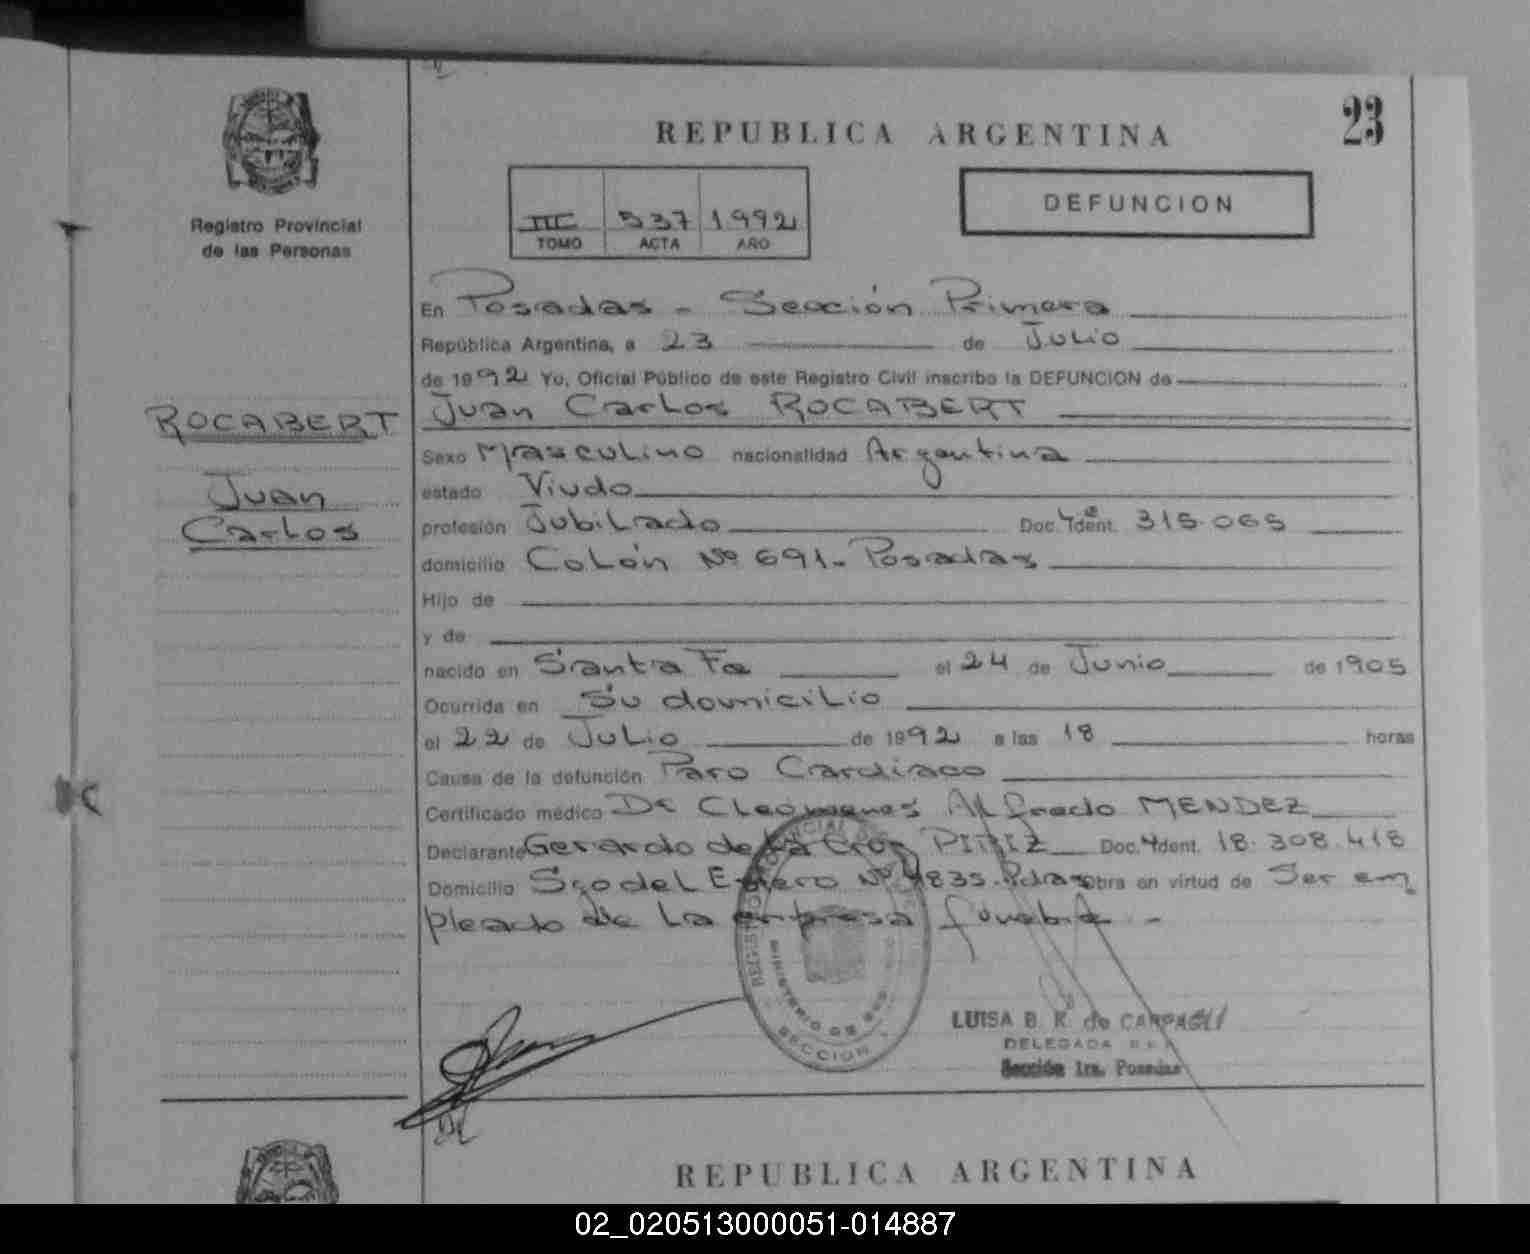 23
REPUBLICA ARGENTINA
Registro Provincial
de las Personas
III 537 1992
TOMO ACTA AÑO
DEFUNCION
En Posadas - Sección Primera
República Argentina, a 23 de Julio
de 1992 Yo, Oficial Público de este Registro Civil inscribo la DEFUNCION de
ROCABERT
Juan
Carlos
Juan Carlos ROCABERT
Sexo Masculino nacionalidad Argentina
estado Viudo
profesión Jubilado Doc. Ident. 315.065
domicilio Colón Nº 691- Posadas
Hijo de
y de
nacido en Santa Fe el 24 de Junio de 1905
Ocurrida en Su domicilio
el 22 de Julio de 1992 a las 18 horas
Causa de la defunción Paro Cardiaco
Certificado médico Dr Cleómenes Alfredo MENDEZ
Declarante Gerardo de la Cruz Doc. Ident. 18.308.418
Domicilio Sgo del Estero Nº 4835. Pdas obra en virtud de Ser em
pleado de la empresa fúnebre -
MINISTERIO DE
SECCION 1
LUISA B. K. de
DELEGADA
Sección 1ra. Posadas
REPUBLICA ARGENTINA
02_020513000051-014887